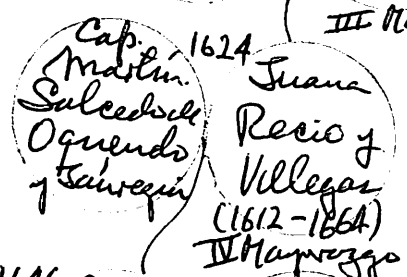 III M
Cap.
Martín
Salcedo de
Oquendo
y Jáuregui
1624
Juana
Recio y
Villegas
(1612-1664)
IV Mayorazgo